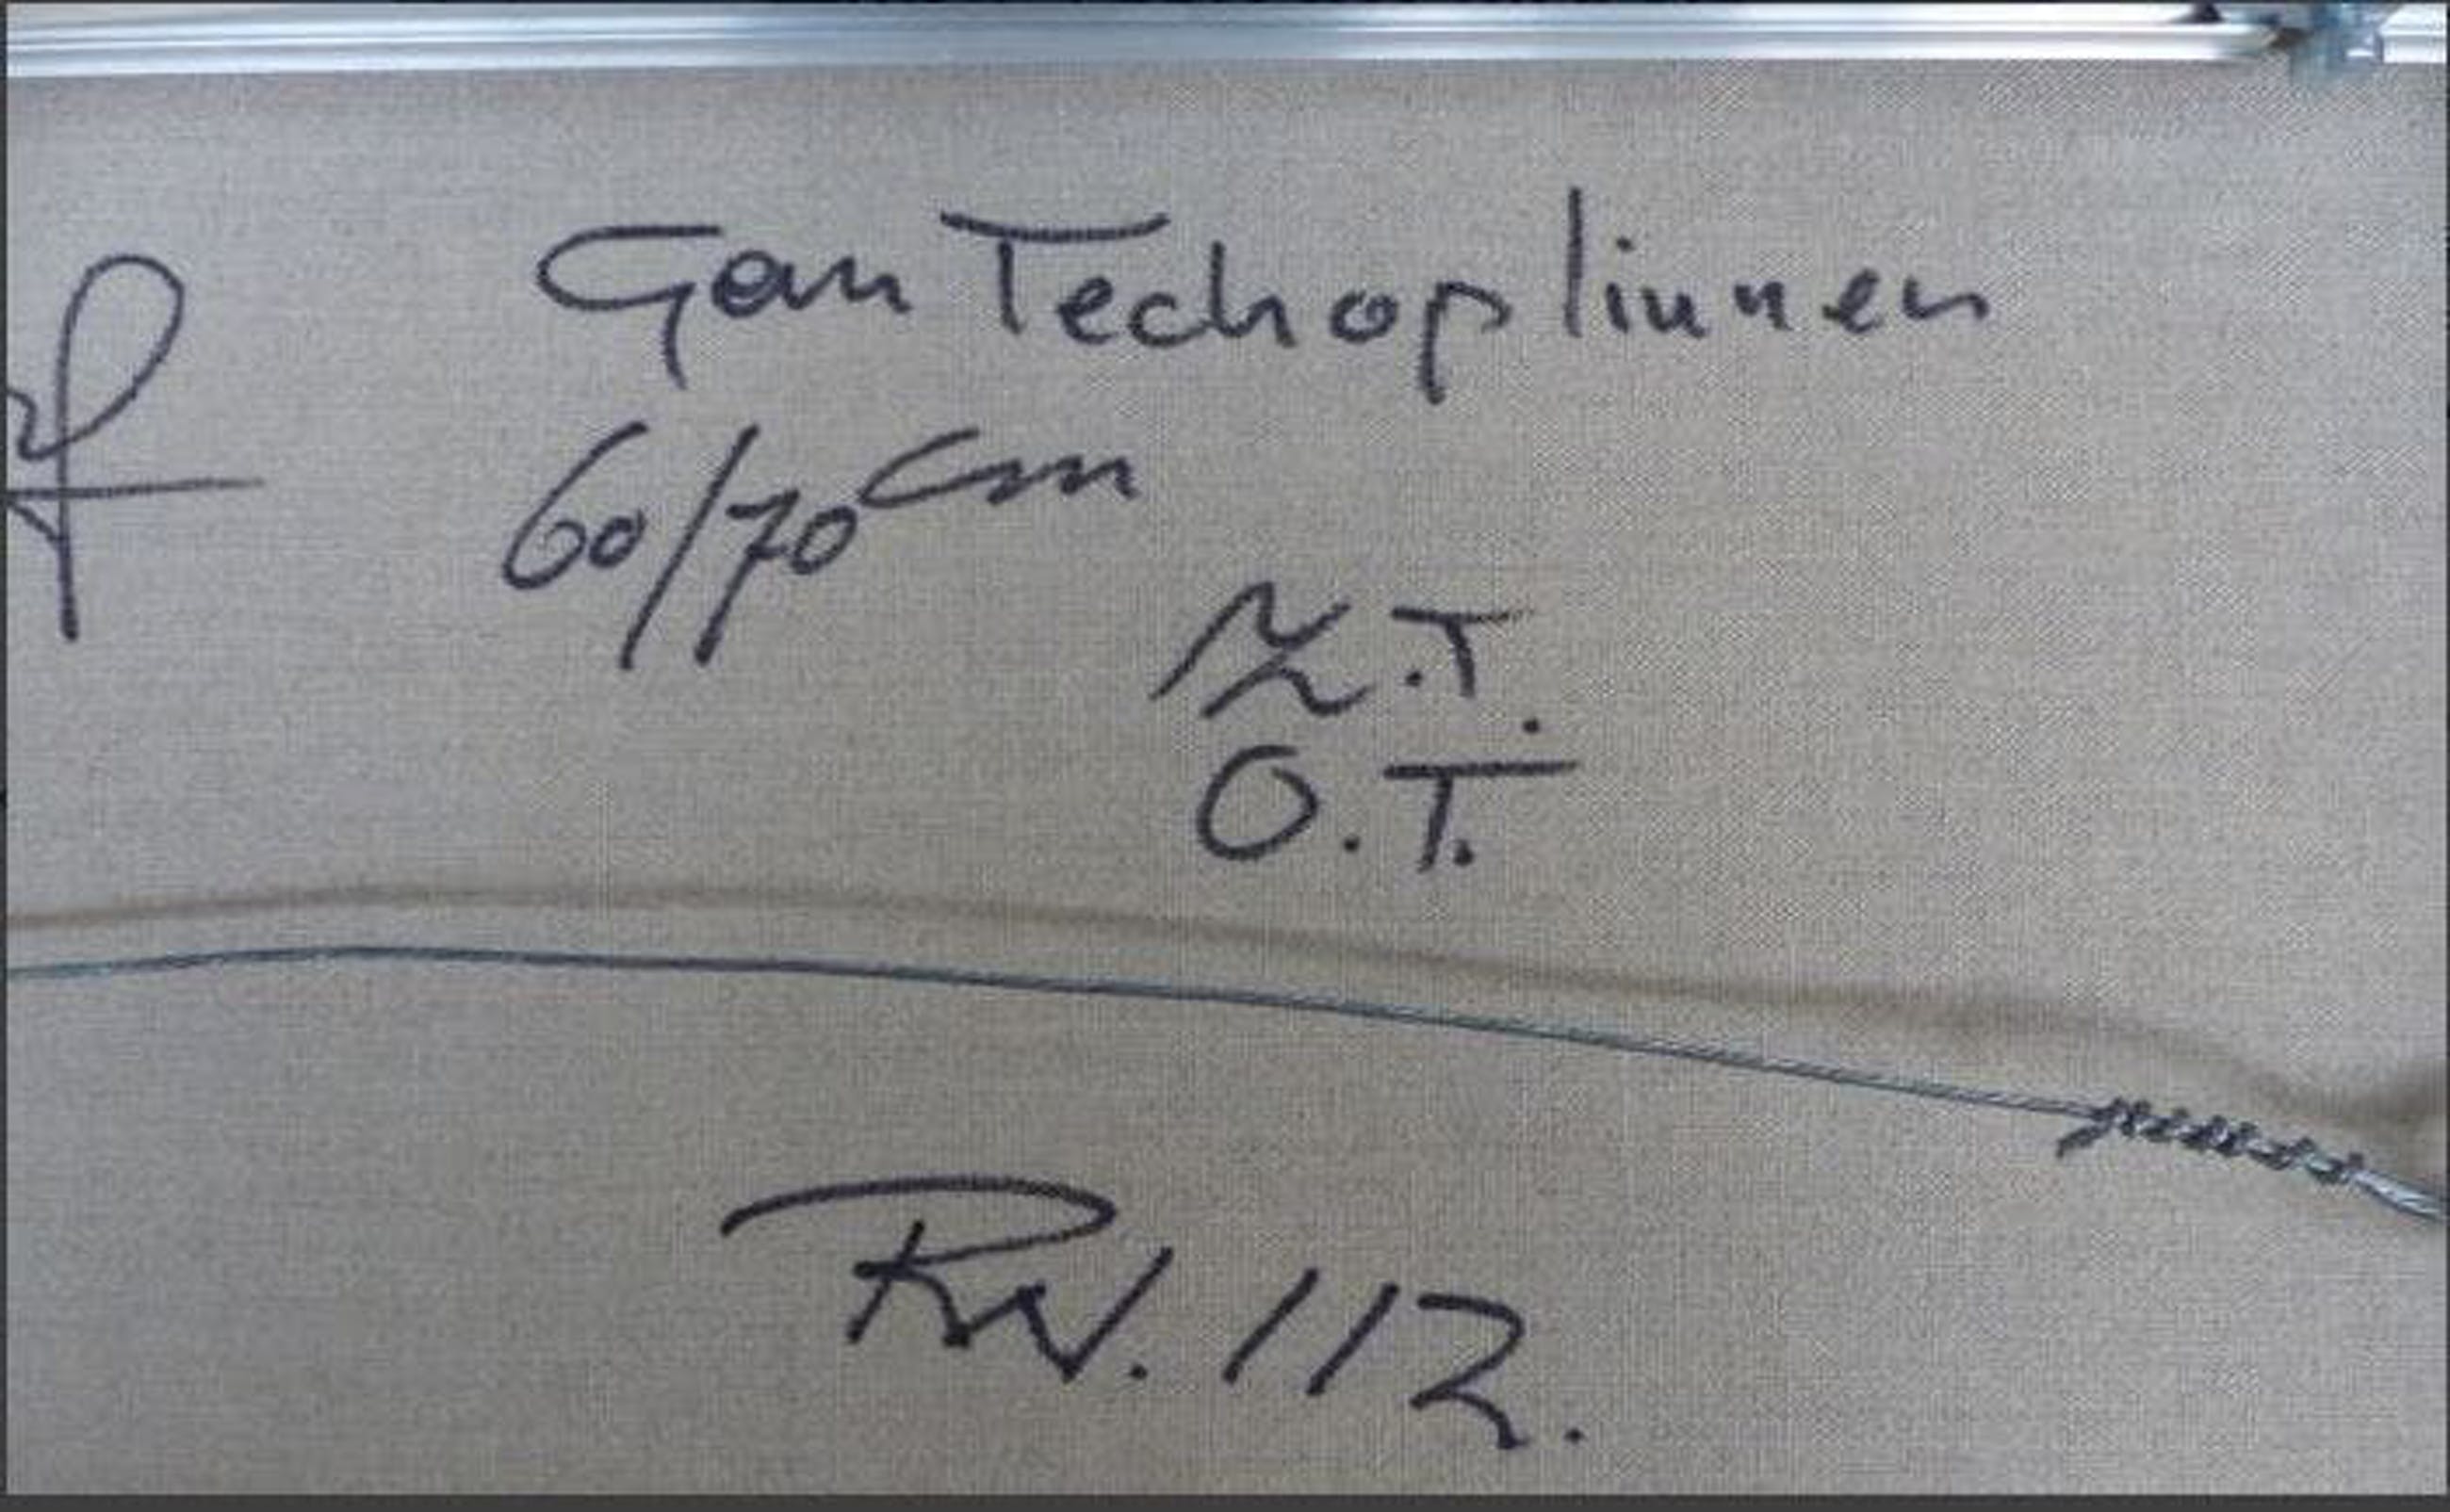 Gem Tech op linnen
60/70 cm
Z.T.
O.T.
RN. 112.